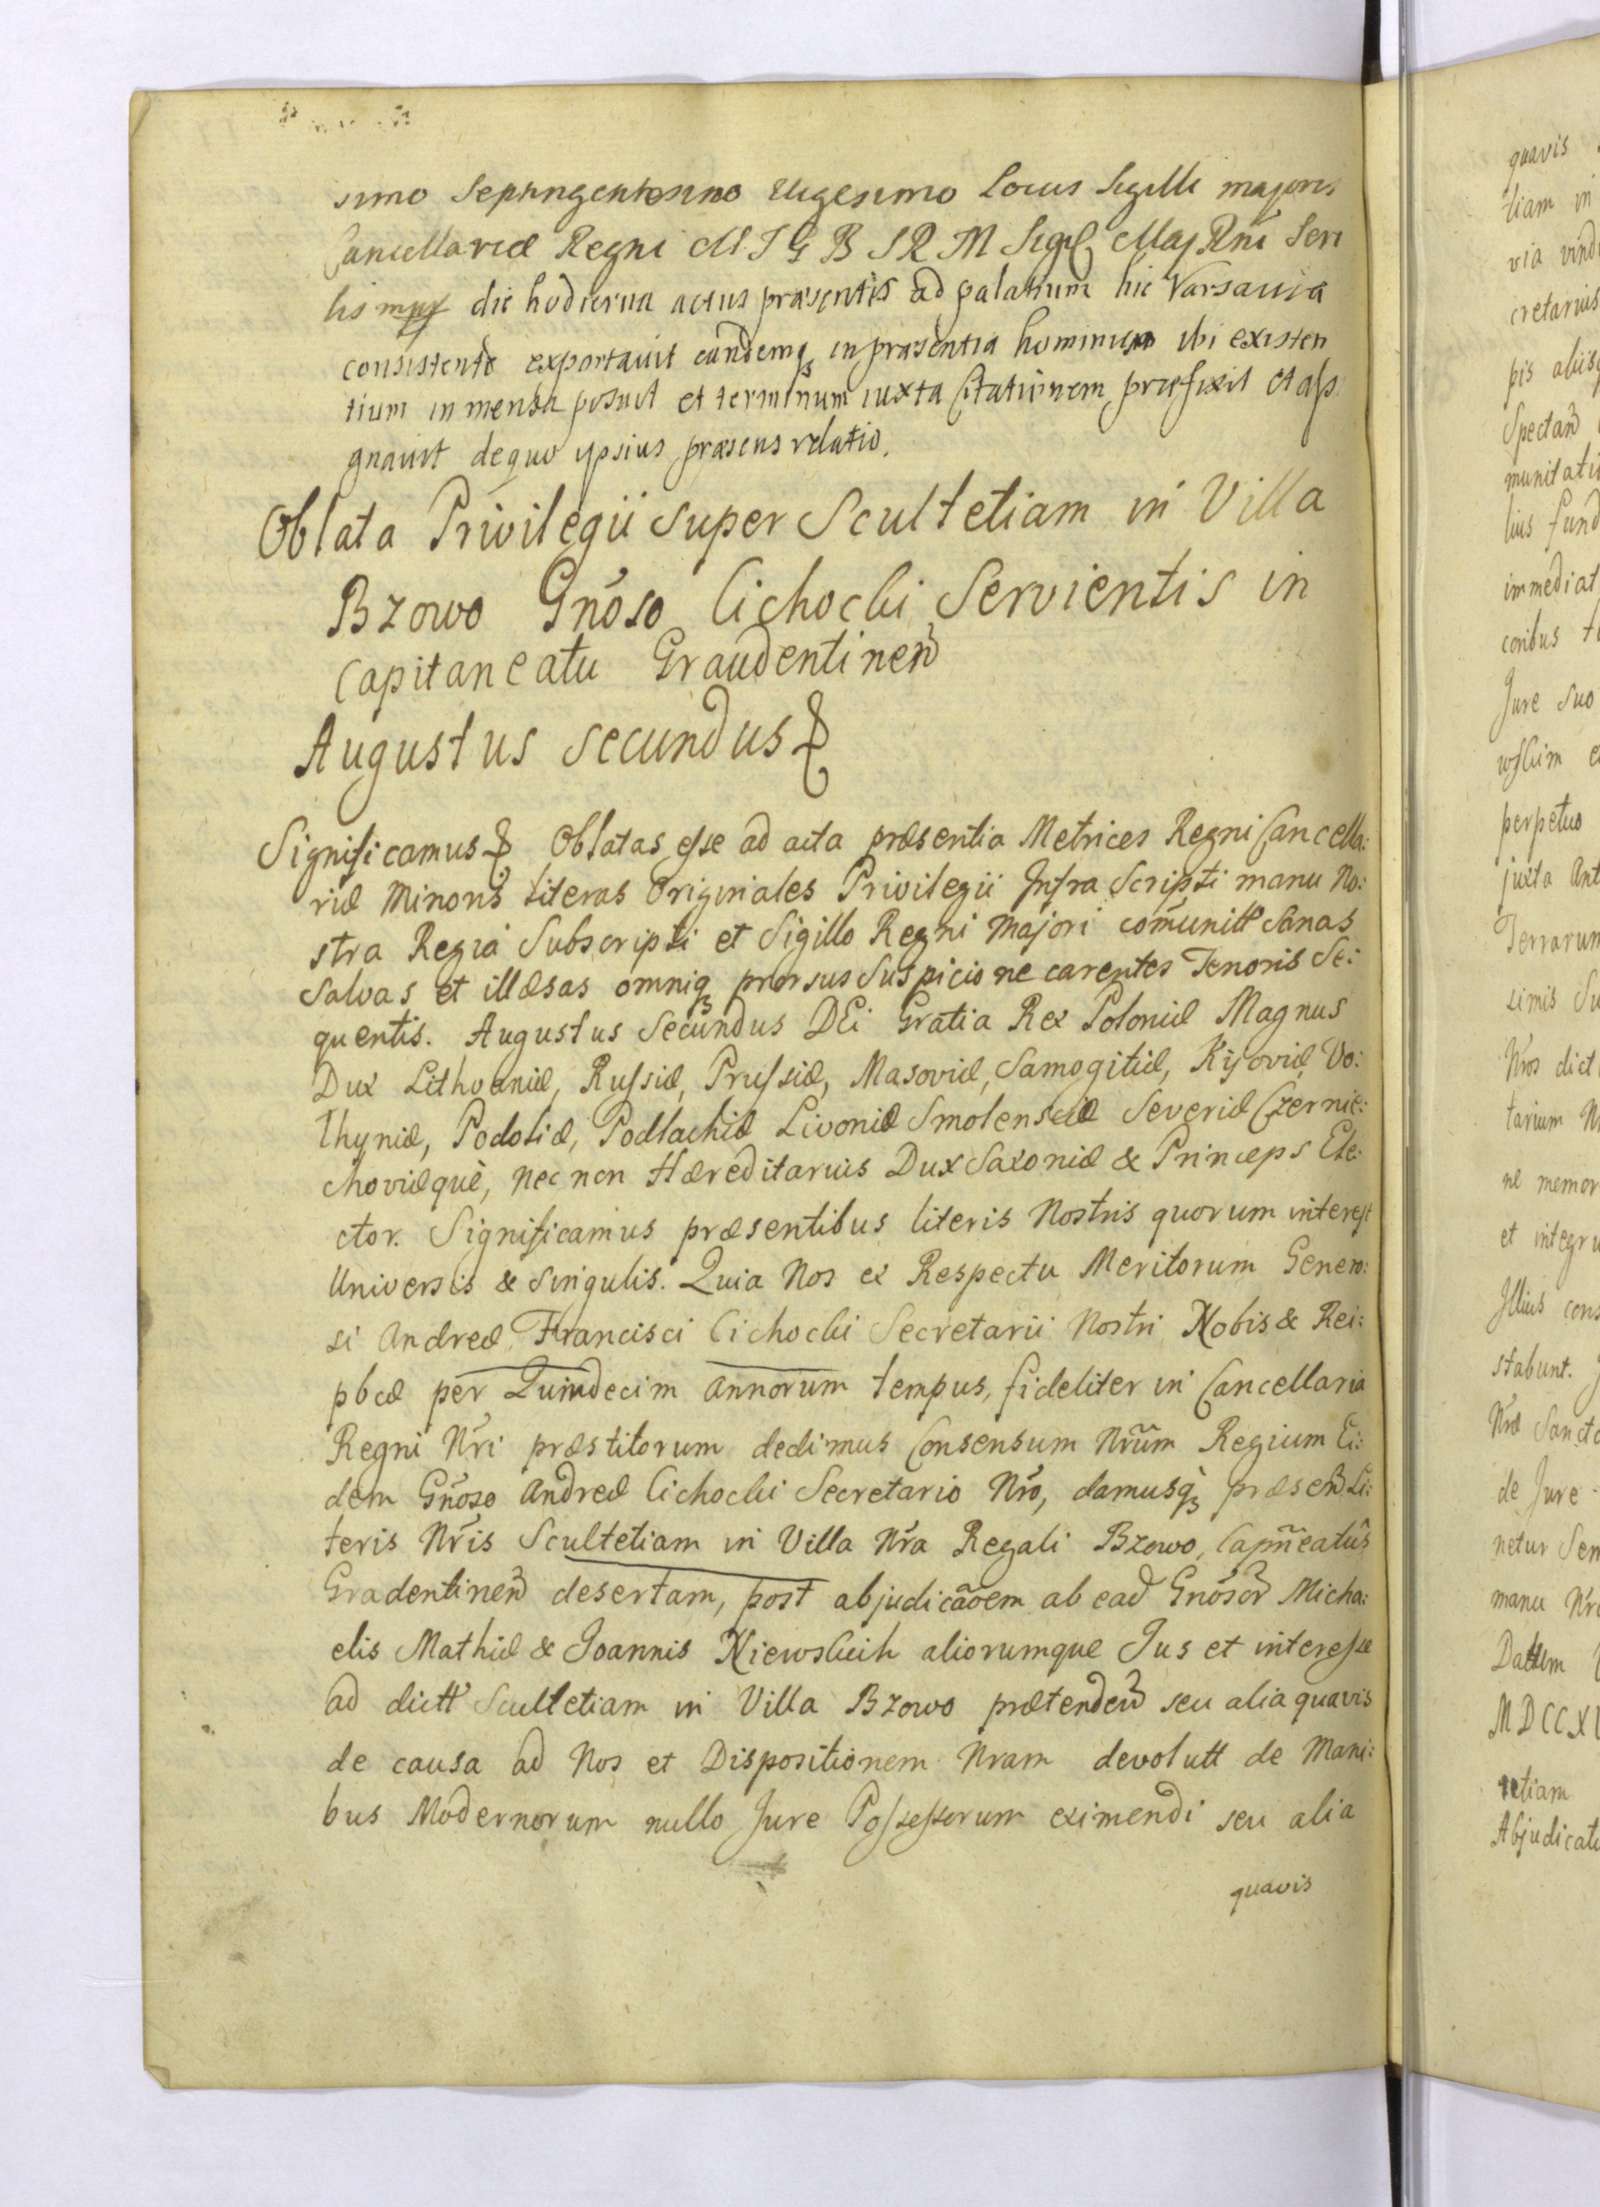 simo Septingentesimo Vigesimo Locus Sigilli majoris
Cancellariæ Regni M J G B S R M Sigil Maj Rñi
die hodierna actus præsentis ad palatium hic Varsavia
consistente exportavit eandemq in præsentia hominum ibi existen
tium in mensa posuit et terminum iuxta Citationem præfixit et assi
gnavit de quo ypsius præsens relatio.
Oblata Privilegii super Scultetiam in Villa
Bzowo Gnõso Cichocki Servientis in
Capitaneatu Graudentinen
Augustus Secundus &
Significamus & Oblatas esse ad acta præsentia Metrices Regni Cancella:
riæ Minoris literas Originales Privilegii Infra Scripti manu No:
stra Regia Subscripti et Sigillo Regni Majori cõmunitt Sanas
Salvas et illæsas omniq prorsus Suspicione carentes Tenoris Se:
quentis. Augustus Secundus DEi Gratia Rex Poloniæ Magnus
Dux Lithvaniæ, Russiæ, Prussiæ, Masoviæ, Samogitiæ, Kijoviæ, Vo:
lhyniæ, Podoliæ, Podlachiæ Livoniæ Smolensciæ Severiæ Czernie:
choviæquè, nec non Hæreditarius Dux Saxoniæ & Princeps Ele:
ctor. Significamus præsentibus literis Nostris quorum interest
Universis & Singulis. Quia Nos ex Respectu Meritorum Genero:
si Andreæ Francisci Cichocki Secretarii Nostri Nobis & Rei:
pbcæ per Quindecim annorum tempus, fideliter in Cancellaria
Regni Nri præstitorum dedimus Consensum Nrũm Regium Ei:
dem Gnõso Andreæ Cichocki Secretario Nrõ, damusq præsen Li:
teris Nris Scultetiam in Villa Nra Regali Bzowo, Capñeatûs
Gradentinen desertam, post abjudicãoem ab ead Gnõsor Micha:
elis Mathiæ & Joannis Niewskich aliorumque Jus et interesse
ad dictt Scultetiam in Villa Bzowo prætenden seu alia quavis
de causa ad Nos et Dispositionem Nram devolutt de Mani:
bus Modernorum nullo Jure Possessorum eximendi seu alia
quavis
quavis
tiam in
via vindi
cretarius
pis aliisq
Spectan
munitati
lius fund
immediat
coribus
Jure Suo
wskim
perpetuo
juxta Ant
Terrarum
simis Su
Nros dict
tarium N
ne memor
et integru
Illius cons
stabunt.
Nræ Sancto
de Jure
netur Sem
manu Nra
Dattum
MDCCX
tetiam
Abjudicat